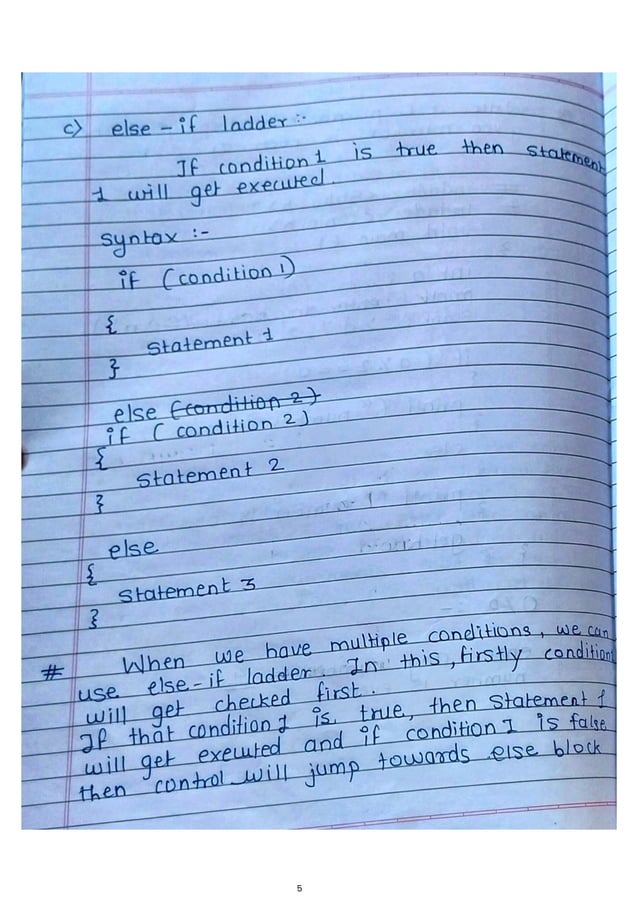 c) else-if ladder :-
If condition 1 is true then statement
1 will get executed.
syntax :-
if (condition 1)
{
statement 1
}
else (condition 2)
if ( condition 2)
{
statement 2
}
else
{
statement 3
}
# When we have multiple conditions, we can
use else-if ladder. In this, firstly condition1
will get checked first.
If that condition 1 is true, then statement 1
will get executed and if condition 1 is false
then control will jump towards else block
5